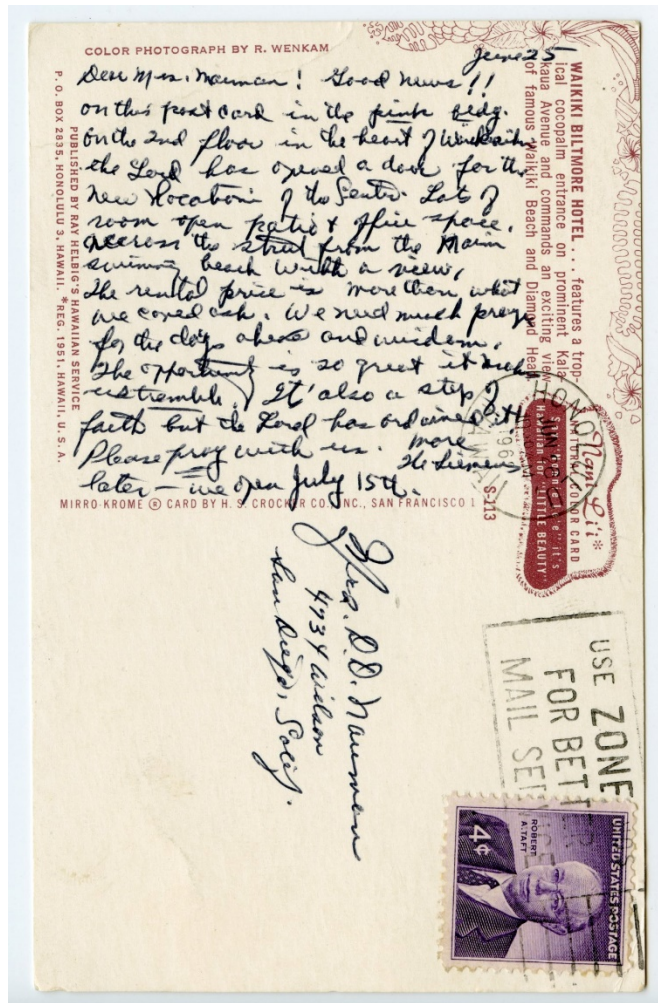 COLOR PHOTOGRAPH BY R. WENKAM
June 25
Dear Mrs. Nauman! Good News!!
on this post card in the pink bldg.
on the 2nd floor in the heart of Waikiki
the Lord has opened a door for the
new location of the Center. Lots of
room open patio & office space,
accross the street from the Main
swimming beach with a view,
The rental price is more then what
we could ask. We need much prayer
for the days ahead and wisdom.
The opportunity is so great it makes
us tremble. It' also a step of
faith but the Lord has ordained it
Please pray with us. more
later — we open July 15th. The Siemens
WAIKIKI BILTMORE HOTEL . . . features a trop-
ical cocopalm entrance on prominent Kala-
kaua Avenue and commands an exciting view
of famous Waikiki Beach and Diamond Head
PUBLISHED BY RAY HELBIG'S HAWAIIAN SERVICE
P. O. BOX 2835, HONOLULU 3, HAWAII. *REG. 1951, HAWAII, U. S. A.
MIRRO-KROME ® CARD BY H. S. CROCKER CO., INC., SAN FRANCISCO 1
S-213
Nani Li'i*
NATURAL COLOR CARD
it's
Hawaiian for "LITTLE BEAUTY"
HONOLULU
HAWAII
JUN
Mrs. D. D. Nauman
4934 Wilson
San Diego, Calif.
USE ZONE
FOR BETTER
MAIL SER
UNITED STATES POSTAGE
ROBERT
A. TAFT
4¢